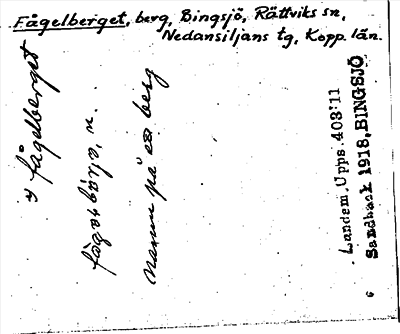 Fågelberget, berg, Bingsjö, Rättviks sn,
Nedansiljans tg, Kopp. län.
fågelberget
namn på ett berg
Landsm. Upps. 403:11
Sandbäck 1918, BINGSJÖ
6